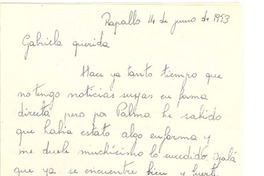 Rapallo 14 de junio de 1953
Gabriela querida
Hace ya tanto tiempo que
no tengo noticias suyas en forma
directa pero por Palma he sabido
que había estado algo enferma y
me duele muchísimo lo sucedido, ojalá
que ya se encuentre bien y fuerte